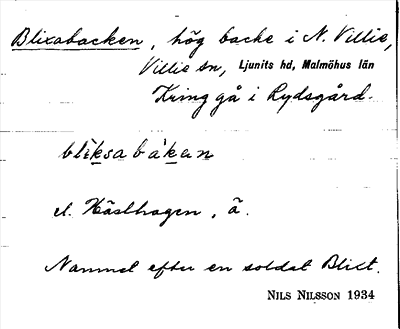 Blixabacken, hög backe i N. Villie,
Villie sn, Ljunits hd, Malmöhus län
Kring gå i Rydsgård.
bliksabakan
el. Hästhagen, ä.
Namnet efter en soldat Blixt.
NILS NILSSON 1934